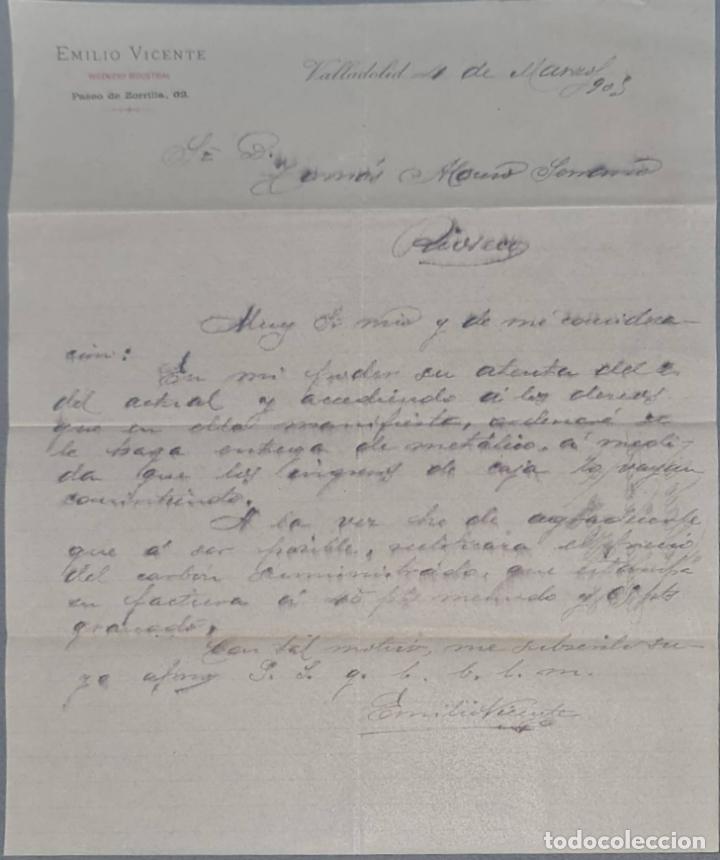 EMILIO VICENTE
INGENIERO INDUSTRIAL
Paseo de Zorrilla, 62.
Valladolid 4 de Marzo
903
Sr. D.
Tomás Alonso
Rioseco
Muy Sr mio y de mi considera-
ción:
En mi poder su atenta del 2
del actual y accediendo á los deseos
que en ella manifiesta, ordenaré se
le haga entrega de metálico, á medi-
da que los ingresos de caja lo vayan
A la vez he de agradecerle
que á ser posible, rectificara el precio
del carbón suministrado, que
su factura á pts menudo y pts
granado.
Con tal motivo, me subscribo su-
yo afmo S. S. q. b. s. m.
Emilio Vicente
todocoleccion
todocoleccion.net